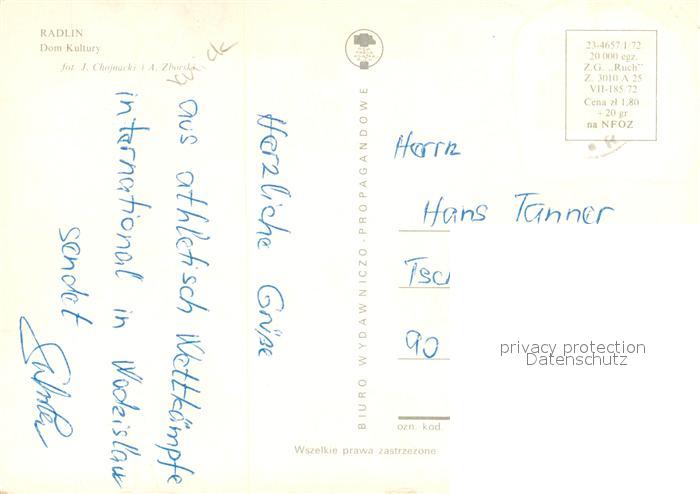 RADLIN
Dom Kultury
fot. J. Chojnacki i A. Zborski
Herzliche Grüße
aus athletisch Wettkämpfe
international in Wodzislaw
sendet
BIURO WYDAWNICZO-PROPAGANDOWE
23-4657/1/72
20 000 egz.
Z.G. „Ruch”
Z. 3010 A 25
VII-185/72
Cena zł 1,80
+ 20 gr
na NFOZ
Herrn
Hans Tanner
Tsc
90
privacy protection
Datenschutz
ozn. kod.
Wszelkie prawa zastrzeżone